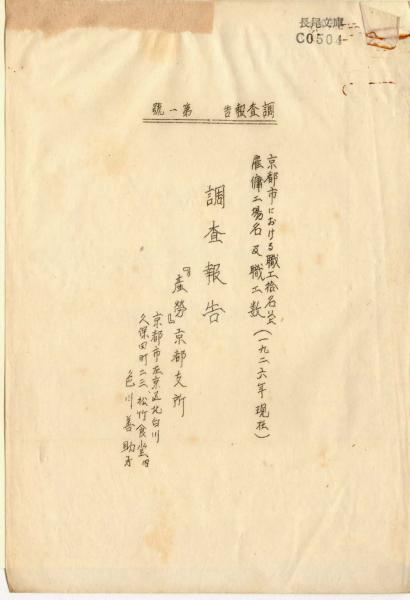 長尾文庫
C0504
調査報告 第一號
京都市における職工拾名以上
雇傭工場名及職工数(一九二六年現在)
調査報告
『産勞』京都支所
京都市左京区北白川
久保田町二三松竹食堂内
色川善助方